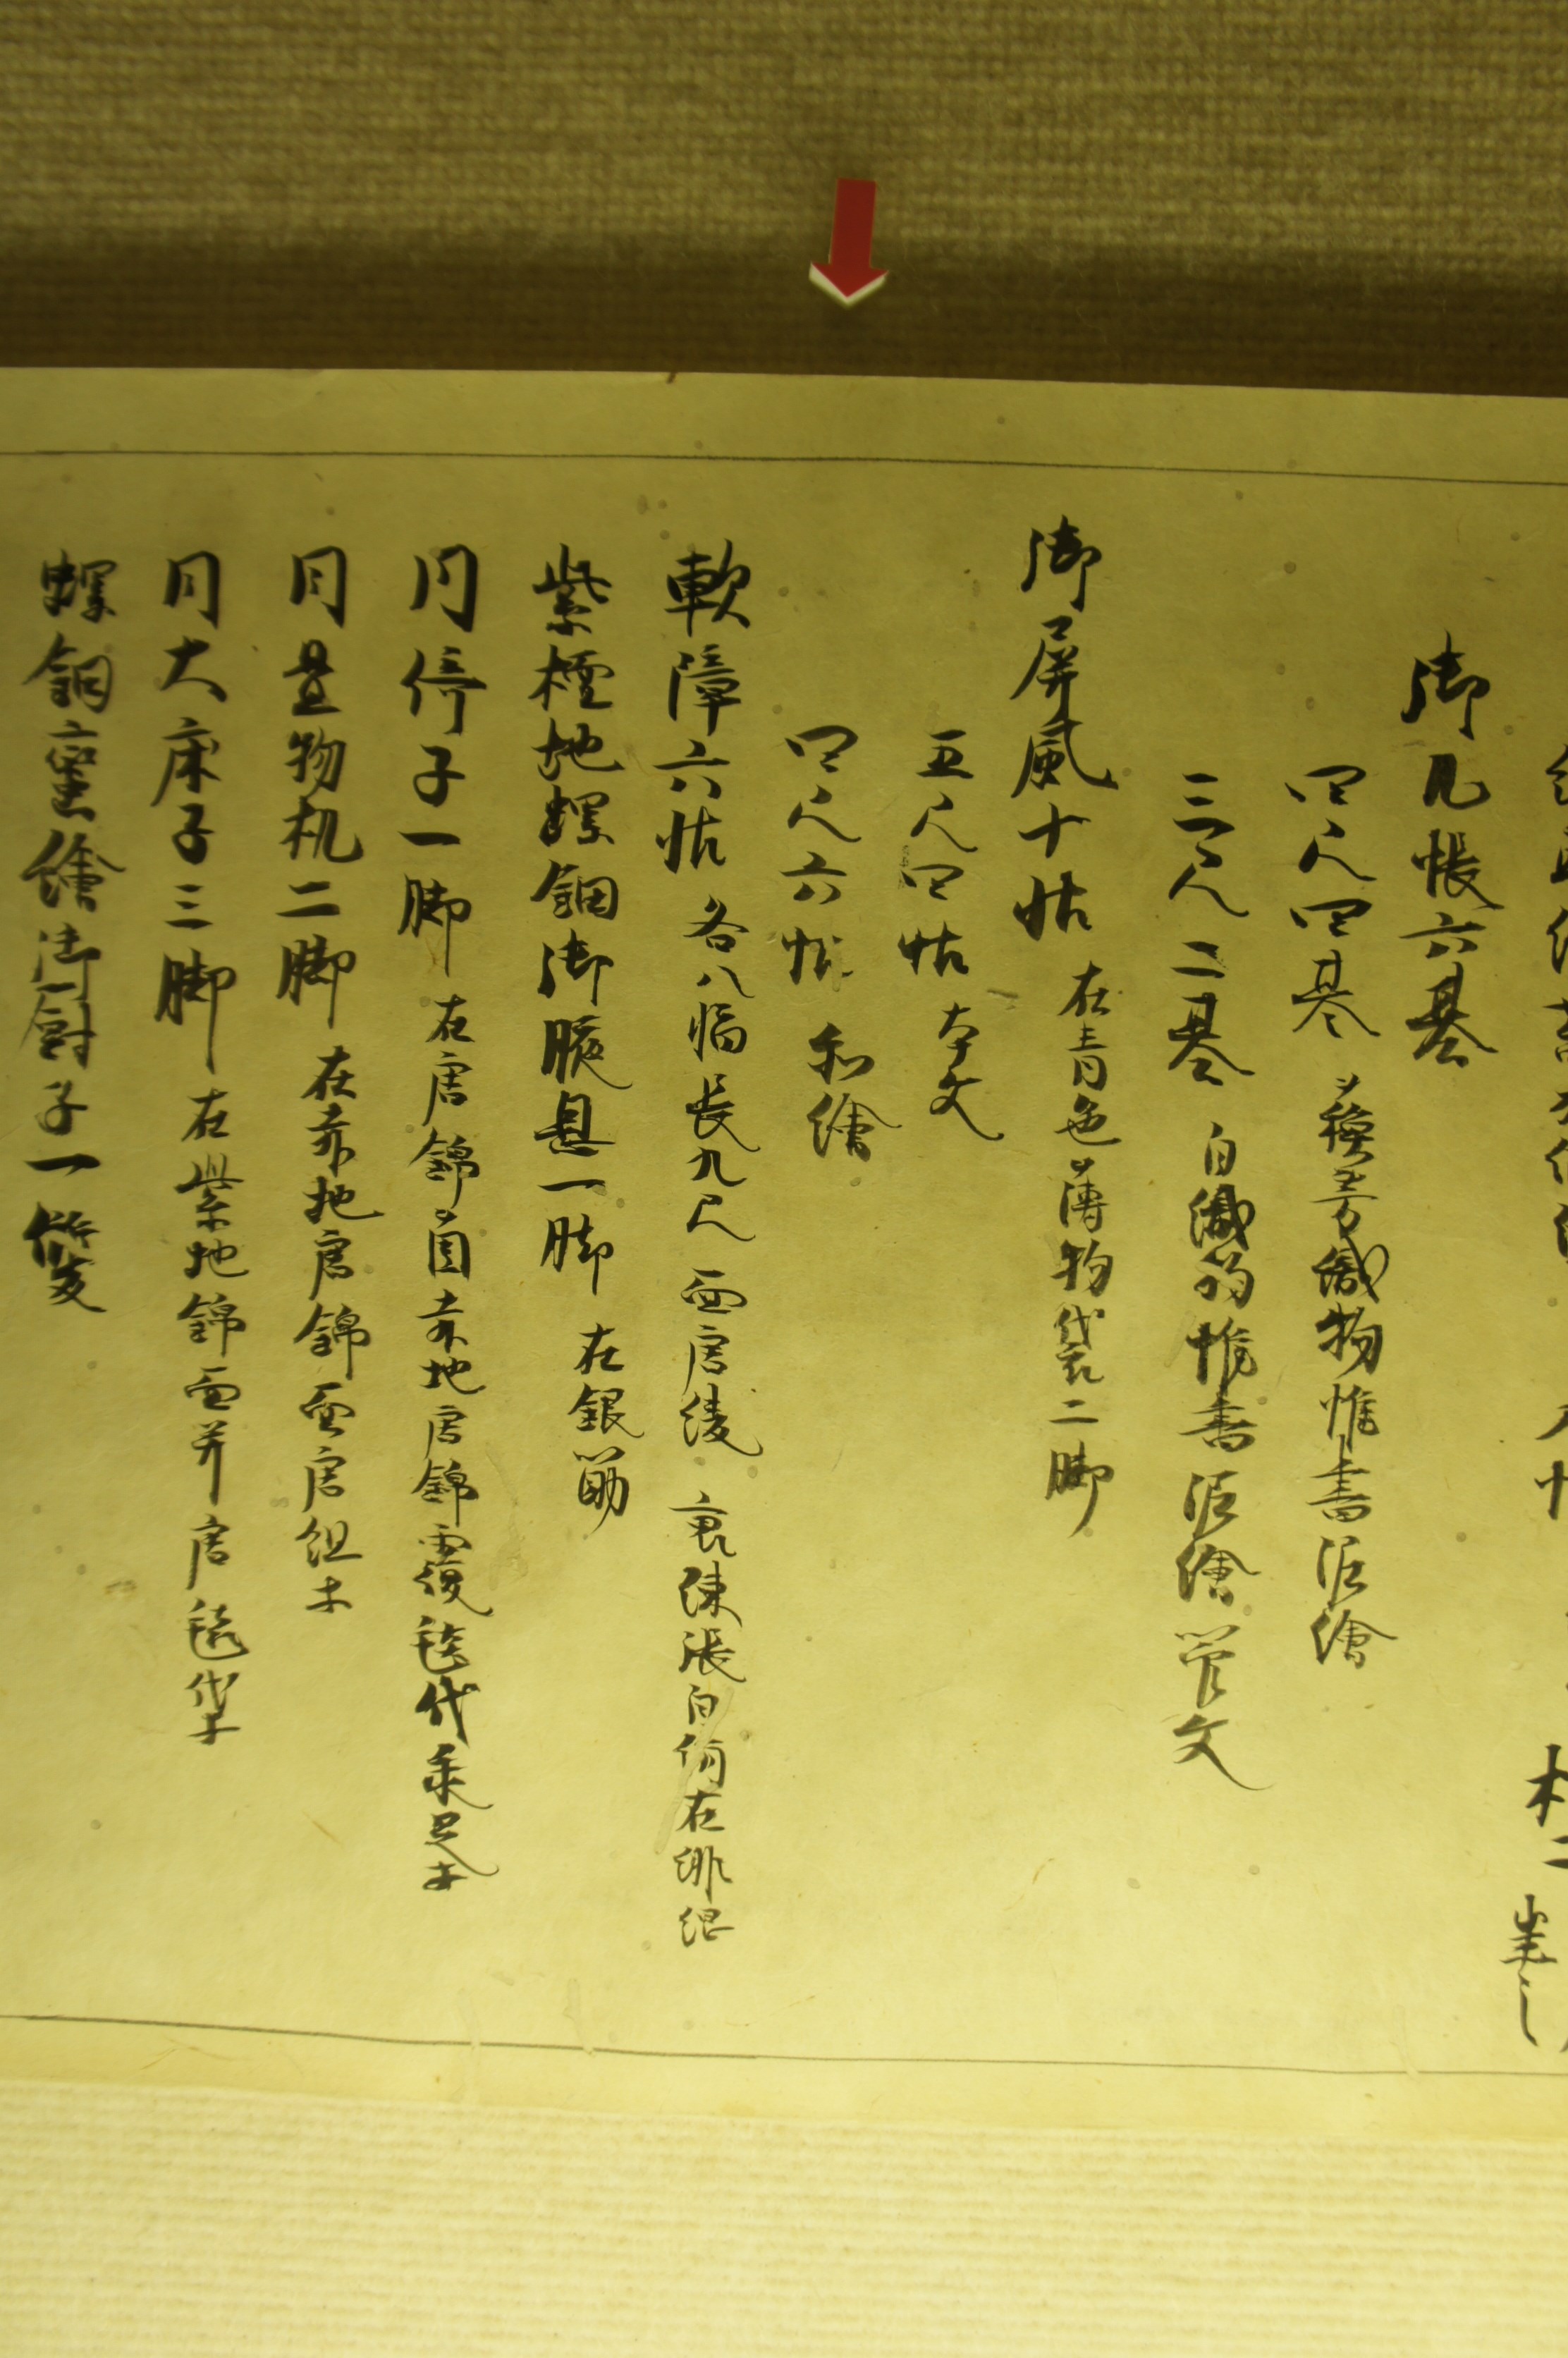 御几帳六基
四尺四基 蘇芳織物帷書泥繪
三尺二基 白織物帷書泥繪 文
御屏風十帖 在青色薄物袋二脚
五尺四帖 本文
四尺六帖 和繪
軟障六帖 各八幅長九尺 面唐綾 裏練張 白 在緋綱
紫檀地螺鈿御脇息一脚 在銀筋
同倚子一脚 在唐錦 赤地唐錦覆毯代
同置物机二脚 在赤地唐錦面唐組
同大床子三脚 在紫地錦面并唐毯代
螺鈿蒔繪御厨子一雙